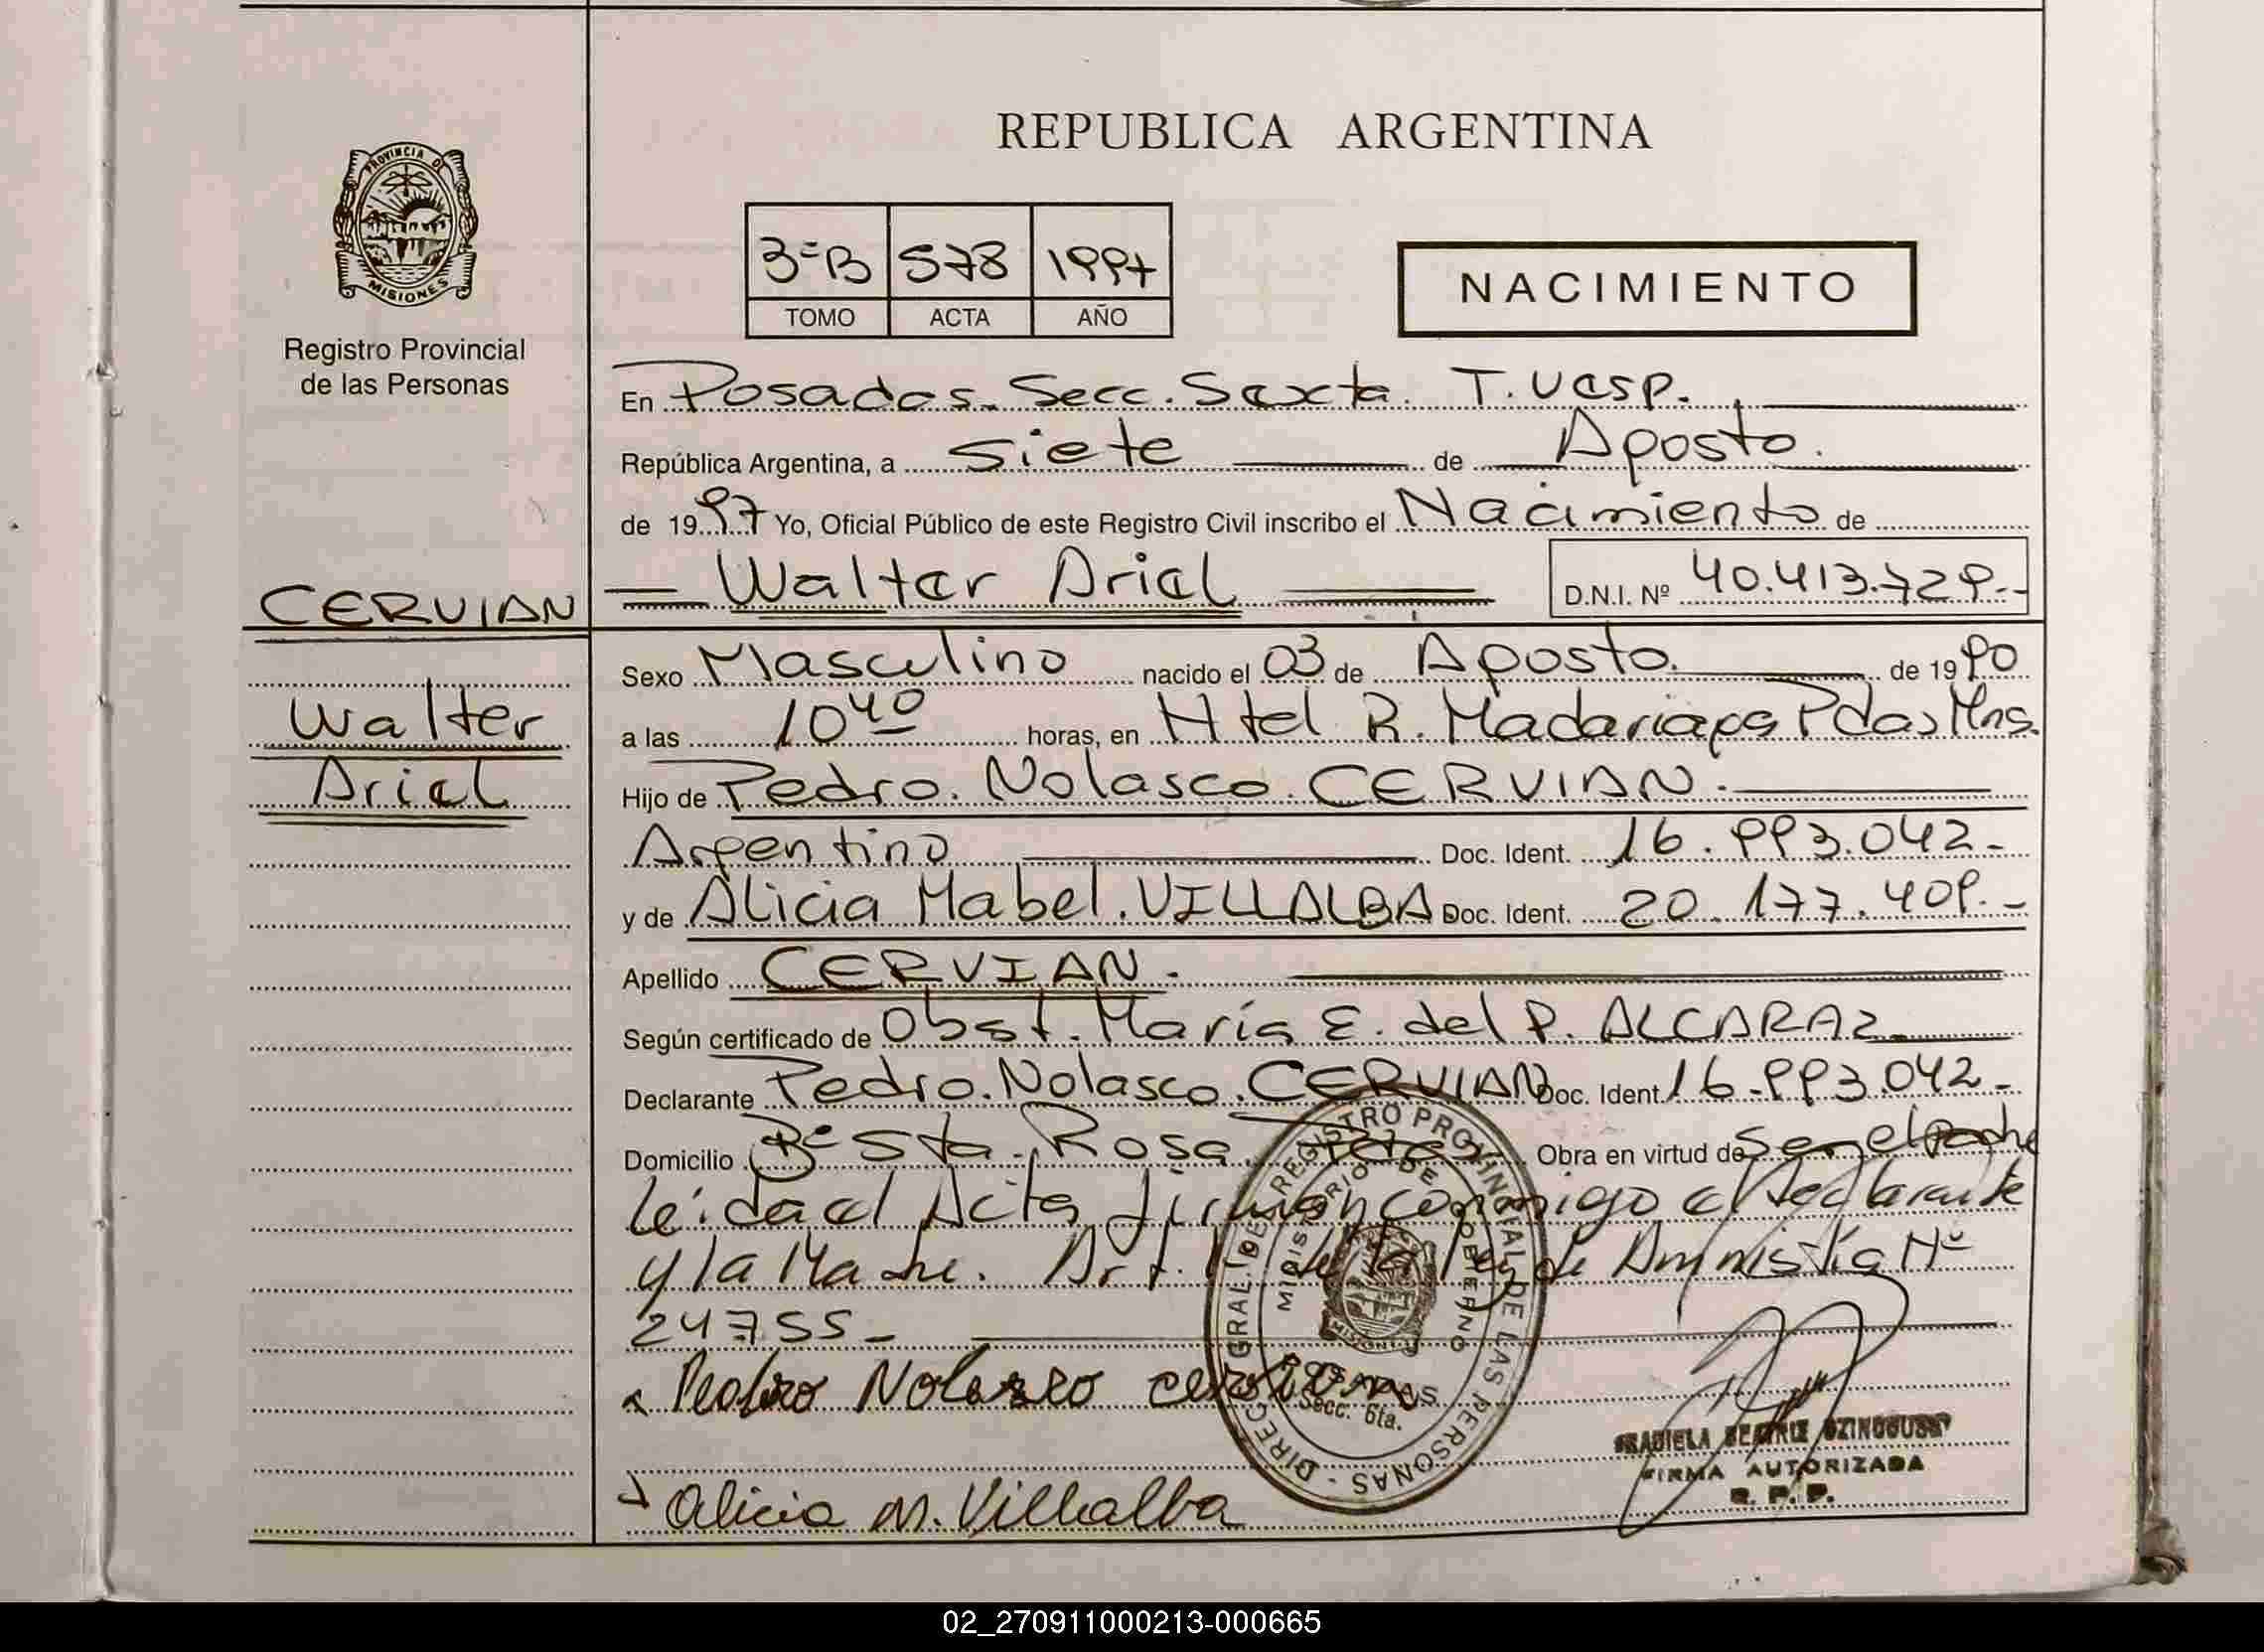 REPUBLICA ARGENTINA
PROVINCIA DE
MISIONES
Registro Provincial
de las Personas
3ºB 578 1997
TOMO ACTA AÑO
NACIMIENTO
En Posadas. Secc. Sexta. T. Vesp.
República Argentina, a siete de Agosto.
de 1997 Yo, Oficial Público de este Registro Civil inscribo el Nacimiento de
CERVIAN
Walter Ariel
D.N.I. Nº 40.413.729.-
Walter
Ariel
Sexo Masculino nacido el 03 de Agosto. de 1990
a las 10 40 horas, en Htel R. Madariaga Pdas Mns.
Hijo de Pedro. Nolasco. CERVIAN.
Argentino Doc. Ident. 16.993.042.-
y de Alicia Mabel. VILLALBA Doc. Ident. 20.177.409.-
Apellido CERVIAN.
Según certificado de Obst. María E. del P. ALCARAZ.
Declarante Pedro. Nolasco. CERVIAN Doc. Ident. 16.993.042.-
Domicilio Bº Sta. Rosa. Obra en virtud de Ser el padre
Leída el Acta firman conmigo el declarante
y la Madre. Art. de la Ley de Amnistía Nº
24755.-
Pedro Nolasco cervian
Alicia M. Villalba
DIREC. GRAL. DEL REGISTRO PROVINCIAL DE LAS PERSONAS
MINISTERIO DE GOBIERNO
MISIONES
POSADAS
Secc. 6ta.
BEATRIZ
FIRMA AUTORIZADA
R. P. P.
02_270911000213-000665